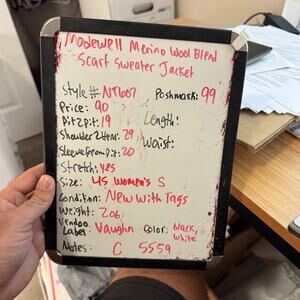 Madewell Merino Wool Blend
Scarf Sweater Jacket
Style # NT667 Poshmark: 99
Price: 90
Pit 2 pit: 19 Length:
Shoulder 2 Hem: 29 Waist:
Sleeve from pit: 20
Stretch: yes
Size: US women's S
Condition: New With Tags
Weight:
Vendoo
Label Vaughn Color: black, white
Notes: C 5559